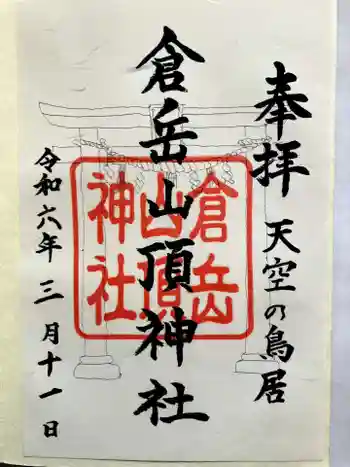 奉拝 天空の鳥居
倉岳山頂神社
令和六年三月十一日
倉岳
山頂
神社